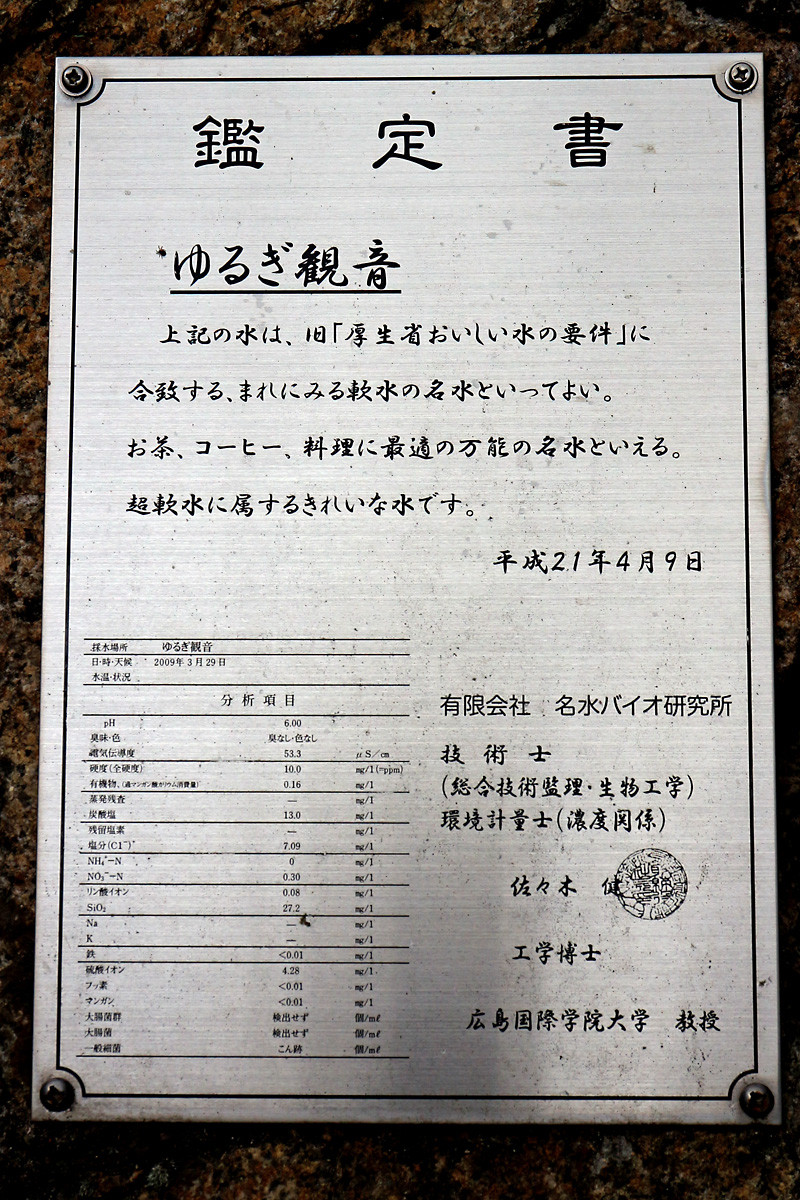 鑑定書
ゆるぎ観音
上記の水は、旧「厚生省おいしい水の要件」に
合致する、まれにみる軟水の名水といってよい。
お茶、コーヒー、料理に最適の万能の名水といえる。
超軟水に属するきれいな水です。
平成21年4月9日
採水場所 ゆるぎ観音
日・時・天候 2009年3月29日
水温・状況
分析項目
pH 6.00
臭味・色 臭なし・色なし
電気伝導度 53.3 μS/cm
硬度(全硬度) 10.0 mg/l(=ppm)
有機物、(過マンガン酸カリウム消費量) 0.16 mg/l
蒸発残査 — mg/l
炭酸塩 13.0 mg/l
残留塩素 — mg/l
塩分(Cl⁻) 7.09 mg/l
NH₄⁺-N 0 mg/l
NO₃⁻-N 0.30 mg/l
リン酸イオン 0.08 mg/l
SiO₂ 27.2 mg/l
Na — mg/l
K — mg/l
鉄 <0.01 mg/l
硫酸イオン 4.28 mg/l
フッ素 <0.01 mg/l
マンガン <0.01 mg/l
大腸菌群 検出せず 個/mℓ
大腸菌 検出せず 個/mℓ
一般細菌 こん跡 個/mℓ
有限会社 名水バイオ研究所
技術士
(総合技術監理・生物工学)
環境計量士(濃度関係)
佐々木 健
工学博士
広島国際学院大学 教授